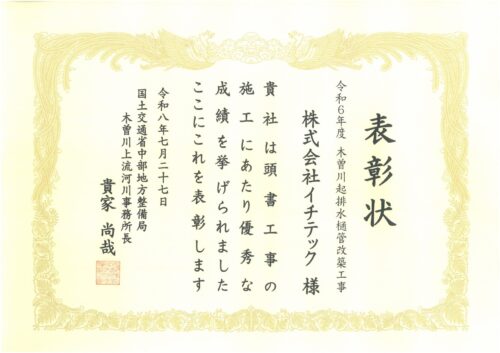 表彰状
令和６年度 木曽川起排水樋管改築工事
株式会社イチテック 様
貴社は頭書工事の
施工にあたり優秀な
成績を挙げられました
ここにこれを表彰します
令和八年七月二十七日
国土交通省中部地方整備局
木曽川上流河川事務所長
貴家 尚哉